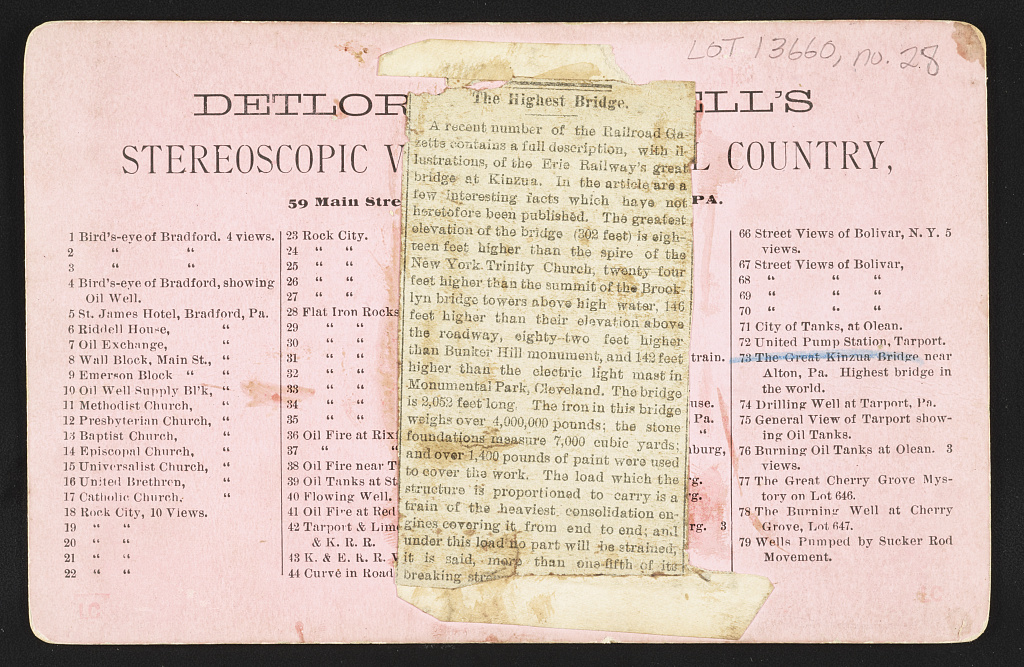 LOT 13660, no. 28
DETLOR ELL'S
STEREOSCOPIC V L COUNTRY,
59 Main Stre PA.
1 Bird's-eye of Bradford. 4 views.
2 “ “
3 “ “
4 Bird's-eye of Bradford, showing
Oil Well.
5 St. James Hotel, Bradford, Pa.
6 Riddell House, “
7 Oil Exchange, “
8 Wall Block, Main St., “
9 Emerson Block “ “
10 Oil Well Supply Bl'k, “
11 Methodist Church, “
12 Presbyterian Church, “
13 Baptist Church, “
14 Episcopal Church, “
15 Universalist Church, “
16 United Brethren, “
17 Catholic Church. “
18 Rock City, 10 Views.
19 “ “
20 “ “
21 “ “
22 “ “
23 Rock City.
24 “ “
25 “ “
26 “ “
27 “ “
28 Flat Iron Rocks
29 “ “
30 “ “
31 “ “
32 “ “
33 “ “
34 “ “
35 “ “
36 Oil Fire at Rix
37 “
38 Oil Fire near T
39 Oil Tanks at St
40 Flowing Well.
41 Oil Fire at Red
42 Tarport & Lime
& K. R. R.
43 K. & E. R. R. V
44 Curve in Road
The Highest Bridge.
A recent number of the Railroad Ga-
zette contains a full description, with il-
lustrations, of the Erie Railway's great
bridge at Kinzua. In the article are a
few interesting facts which have not
heretofore been published. The greatest
elevation of the bridge (302 feet) is eigh-
teen feet higher than the spire of the
New York Trinity Church, twenty-four
feet higher than the summit of the Brook-
lyn bridge towers above high water, 146
feet higher than their elevation above
the roadway, eighty-two feet higher
than Bunker Hill monument, and 142 feet
higher than the electric light mast in
Monumental Park, Cleveland. The bridge
is 2,052 feet long. The iron in this bridge
weighs over 4,000,000 pounds; the stone
foundations measure 7,000 cubic yards;
and over 1,400 pounds of paint were used
to cover the work. The load which the
structure is proportioned to carry is a
train of the heaviest consolidation en-
gines covering it from end to end, and
under this load no part will be strained,
it is said, more than one-fifth of its
breaking
train.
use.
Pa.
“
nburg,
rg.
rg.
rg. 3
66 Street Views of Bolivar, N. Y. 5
views.
67 Street Views of Bolivar,
68 “ “ “
69 “ “ “
70 “ “ “
71 City of Tanks, at Olean.
72 United Pump Station, Tarport.
73 The Great Kinzua Bridge near
Alton, Pa. Highest bridge in
the world.
74 Drilling Well at Tarport, Pa.
75 General View of Tarport show-
ing Oil Tanks.
76 Burning Oil Tanks at Olean. 3
views.
77 The Great Cherry Grove Mys-
tory on Lot 646.
78 The Burning Well at Cherry
Grove, Lot 647.
79 Wells Pumped by Sucker Rod
Movement.